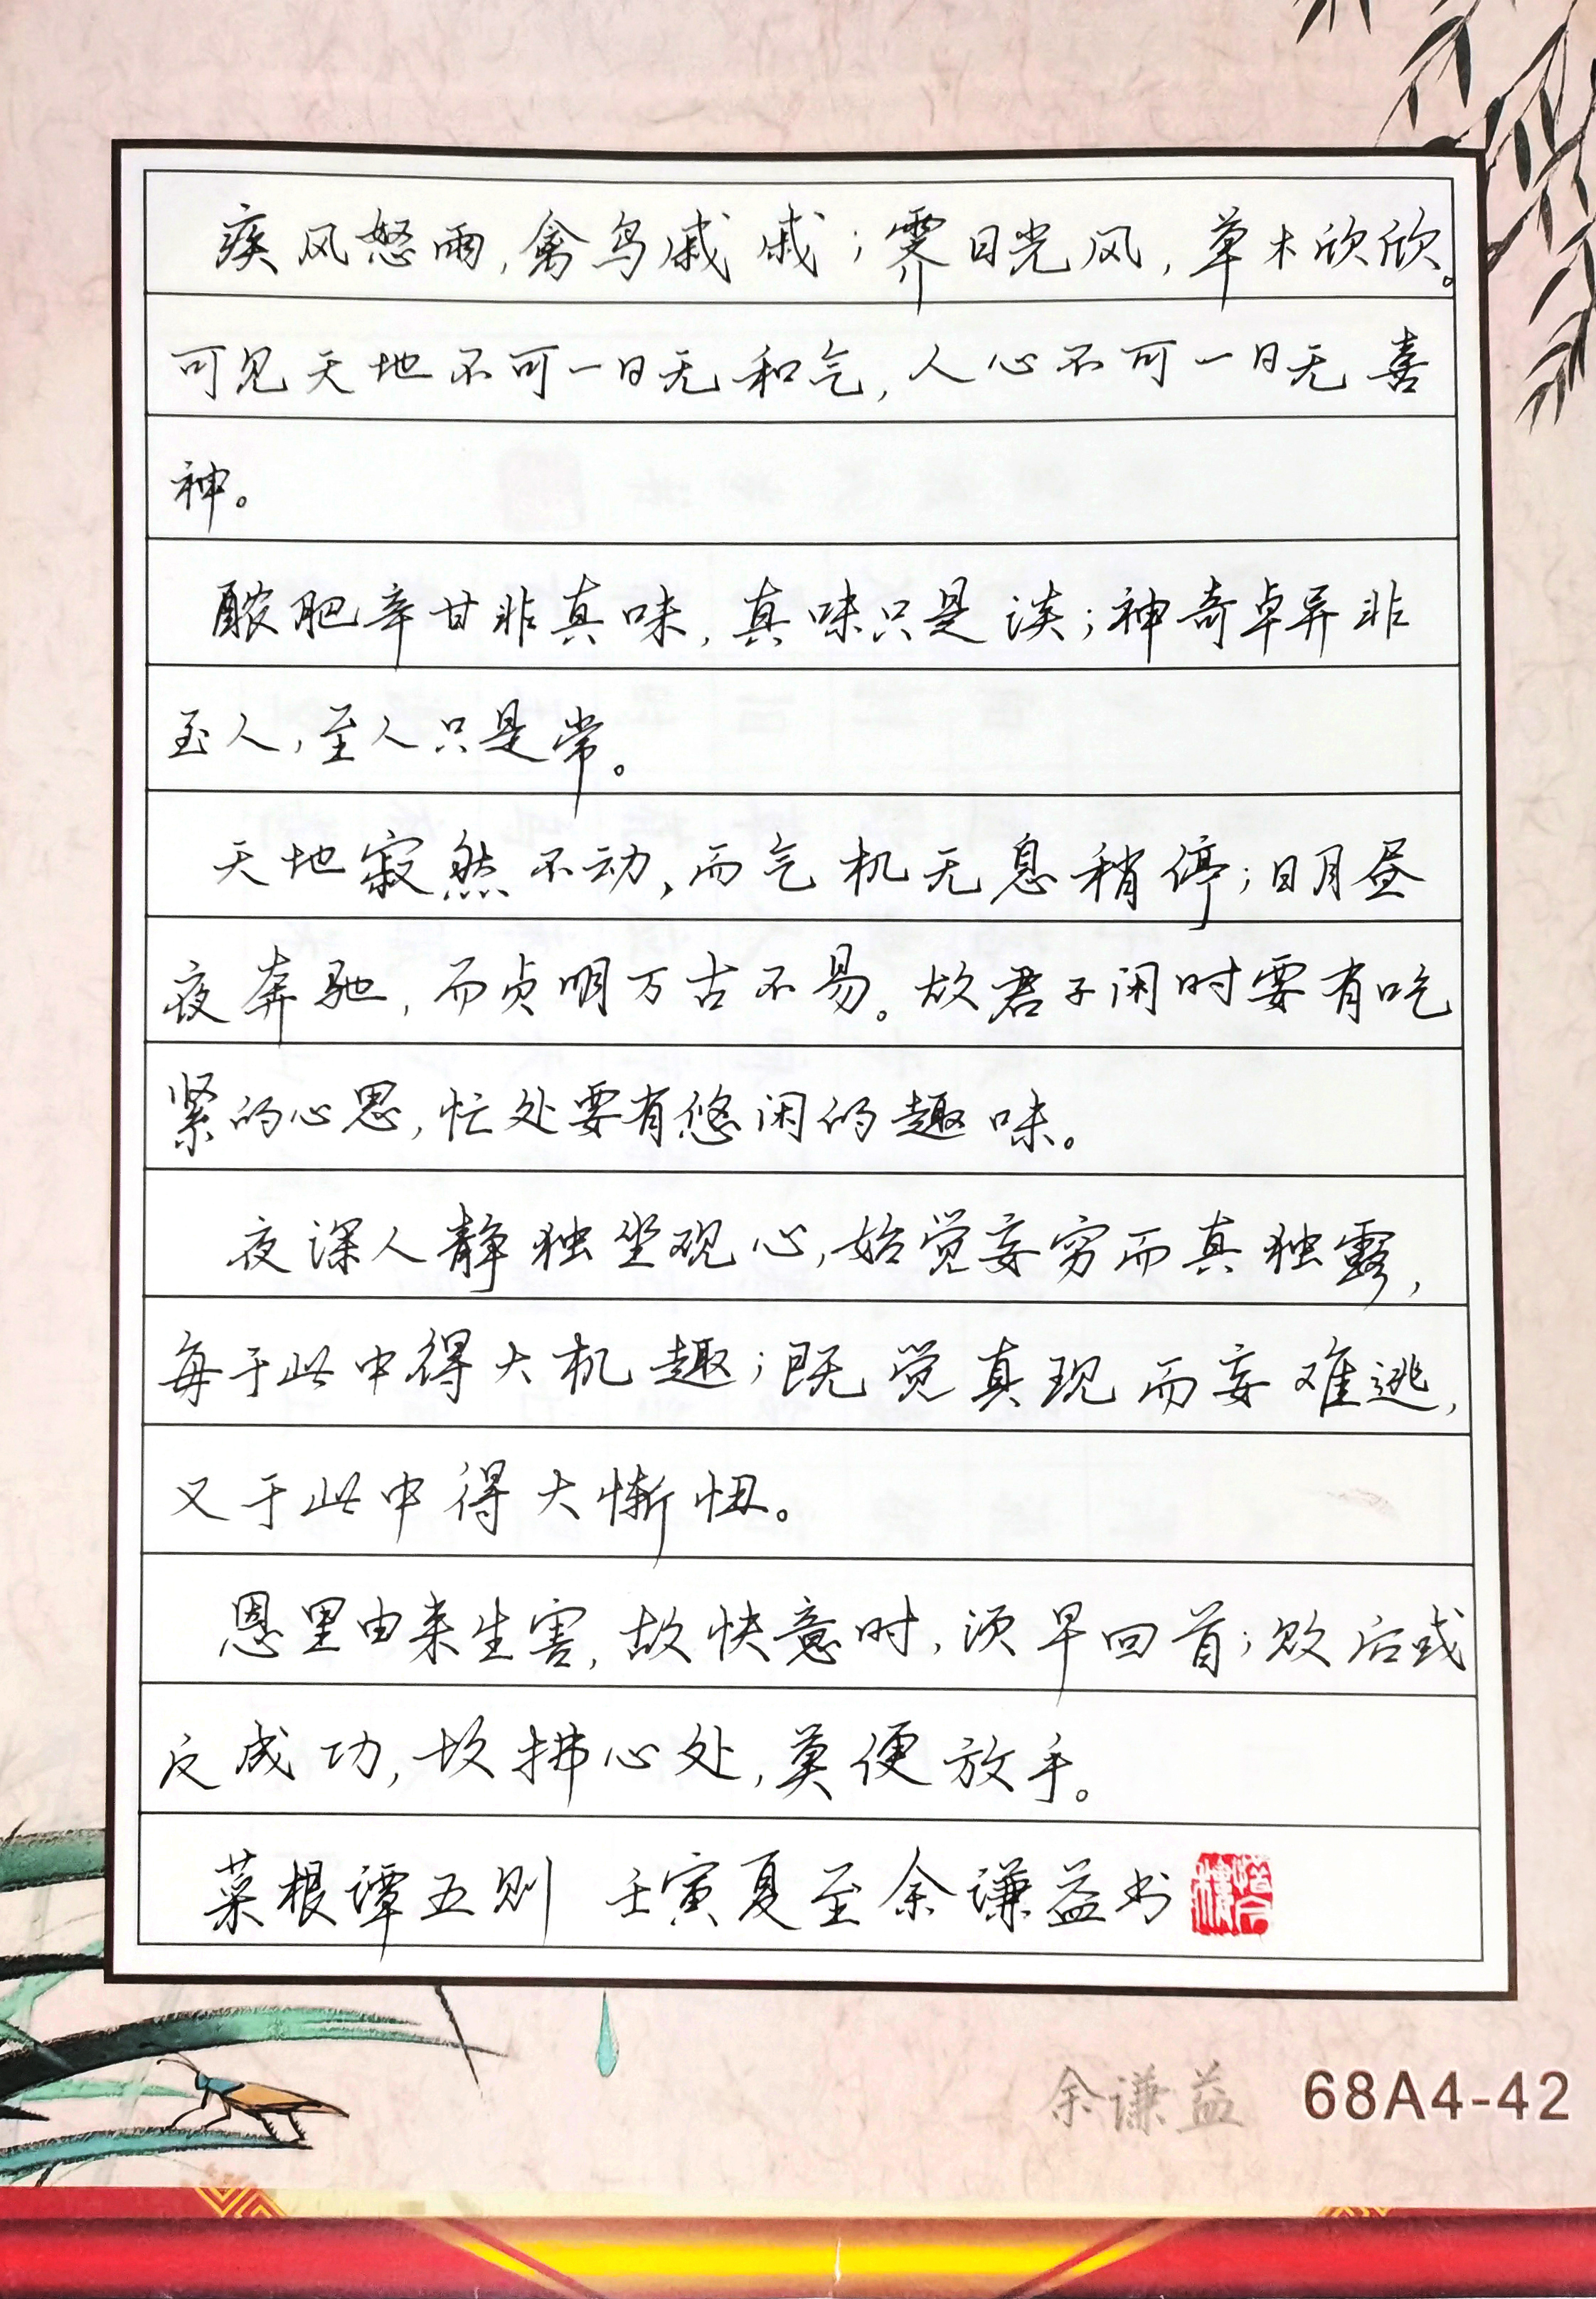 疾风怒雨,禽鸟戚戚;霁日光风,草木欣欣。
可见天地不可一日无和气,人心不可一日无喜
神。
醲肥辛甘非真味,真味只是淡;神奇卓异非
至人,至人只是常。
天地寂然不动,而气机无息稍停;日月昼
夜奔驰,而贞明万古不易。故君子闲时要有吃
紧的心思,忙处要有悠闲的趣味。
夜深人静独坐观心,始觉妄穷而真独露,
每于此中得大机趣;既觉真现而妄难逃,
又于此中得大惭忸。
恩里由来生害,故快意时,须早回首;败后或
反成功,故拂心处,莫便放手。
菜根谭五则 壬寅夏至余谦益书
余谦益 68A4-42